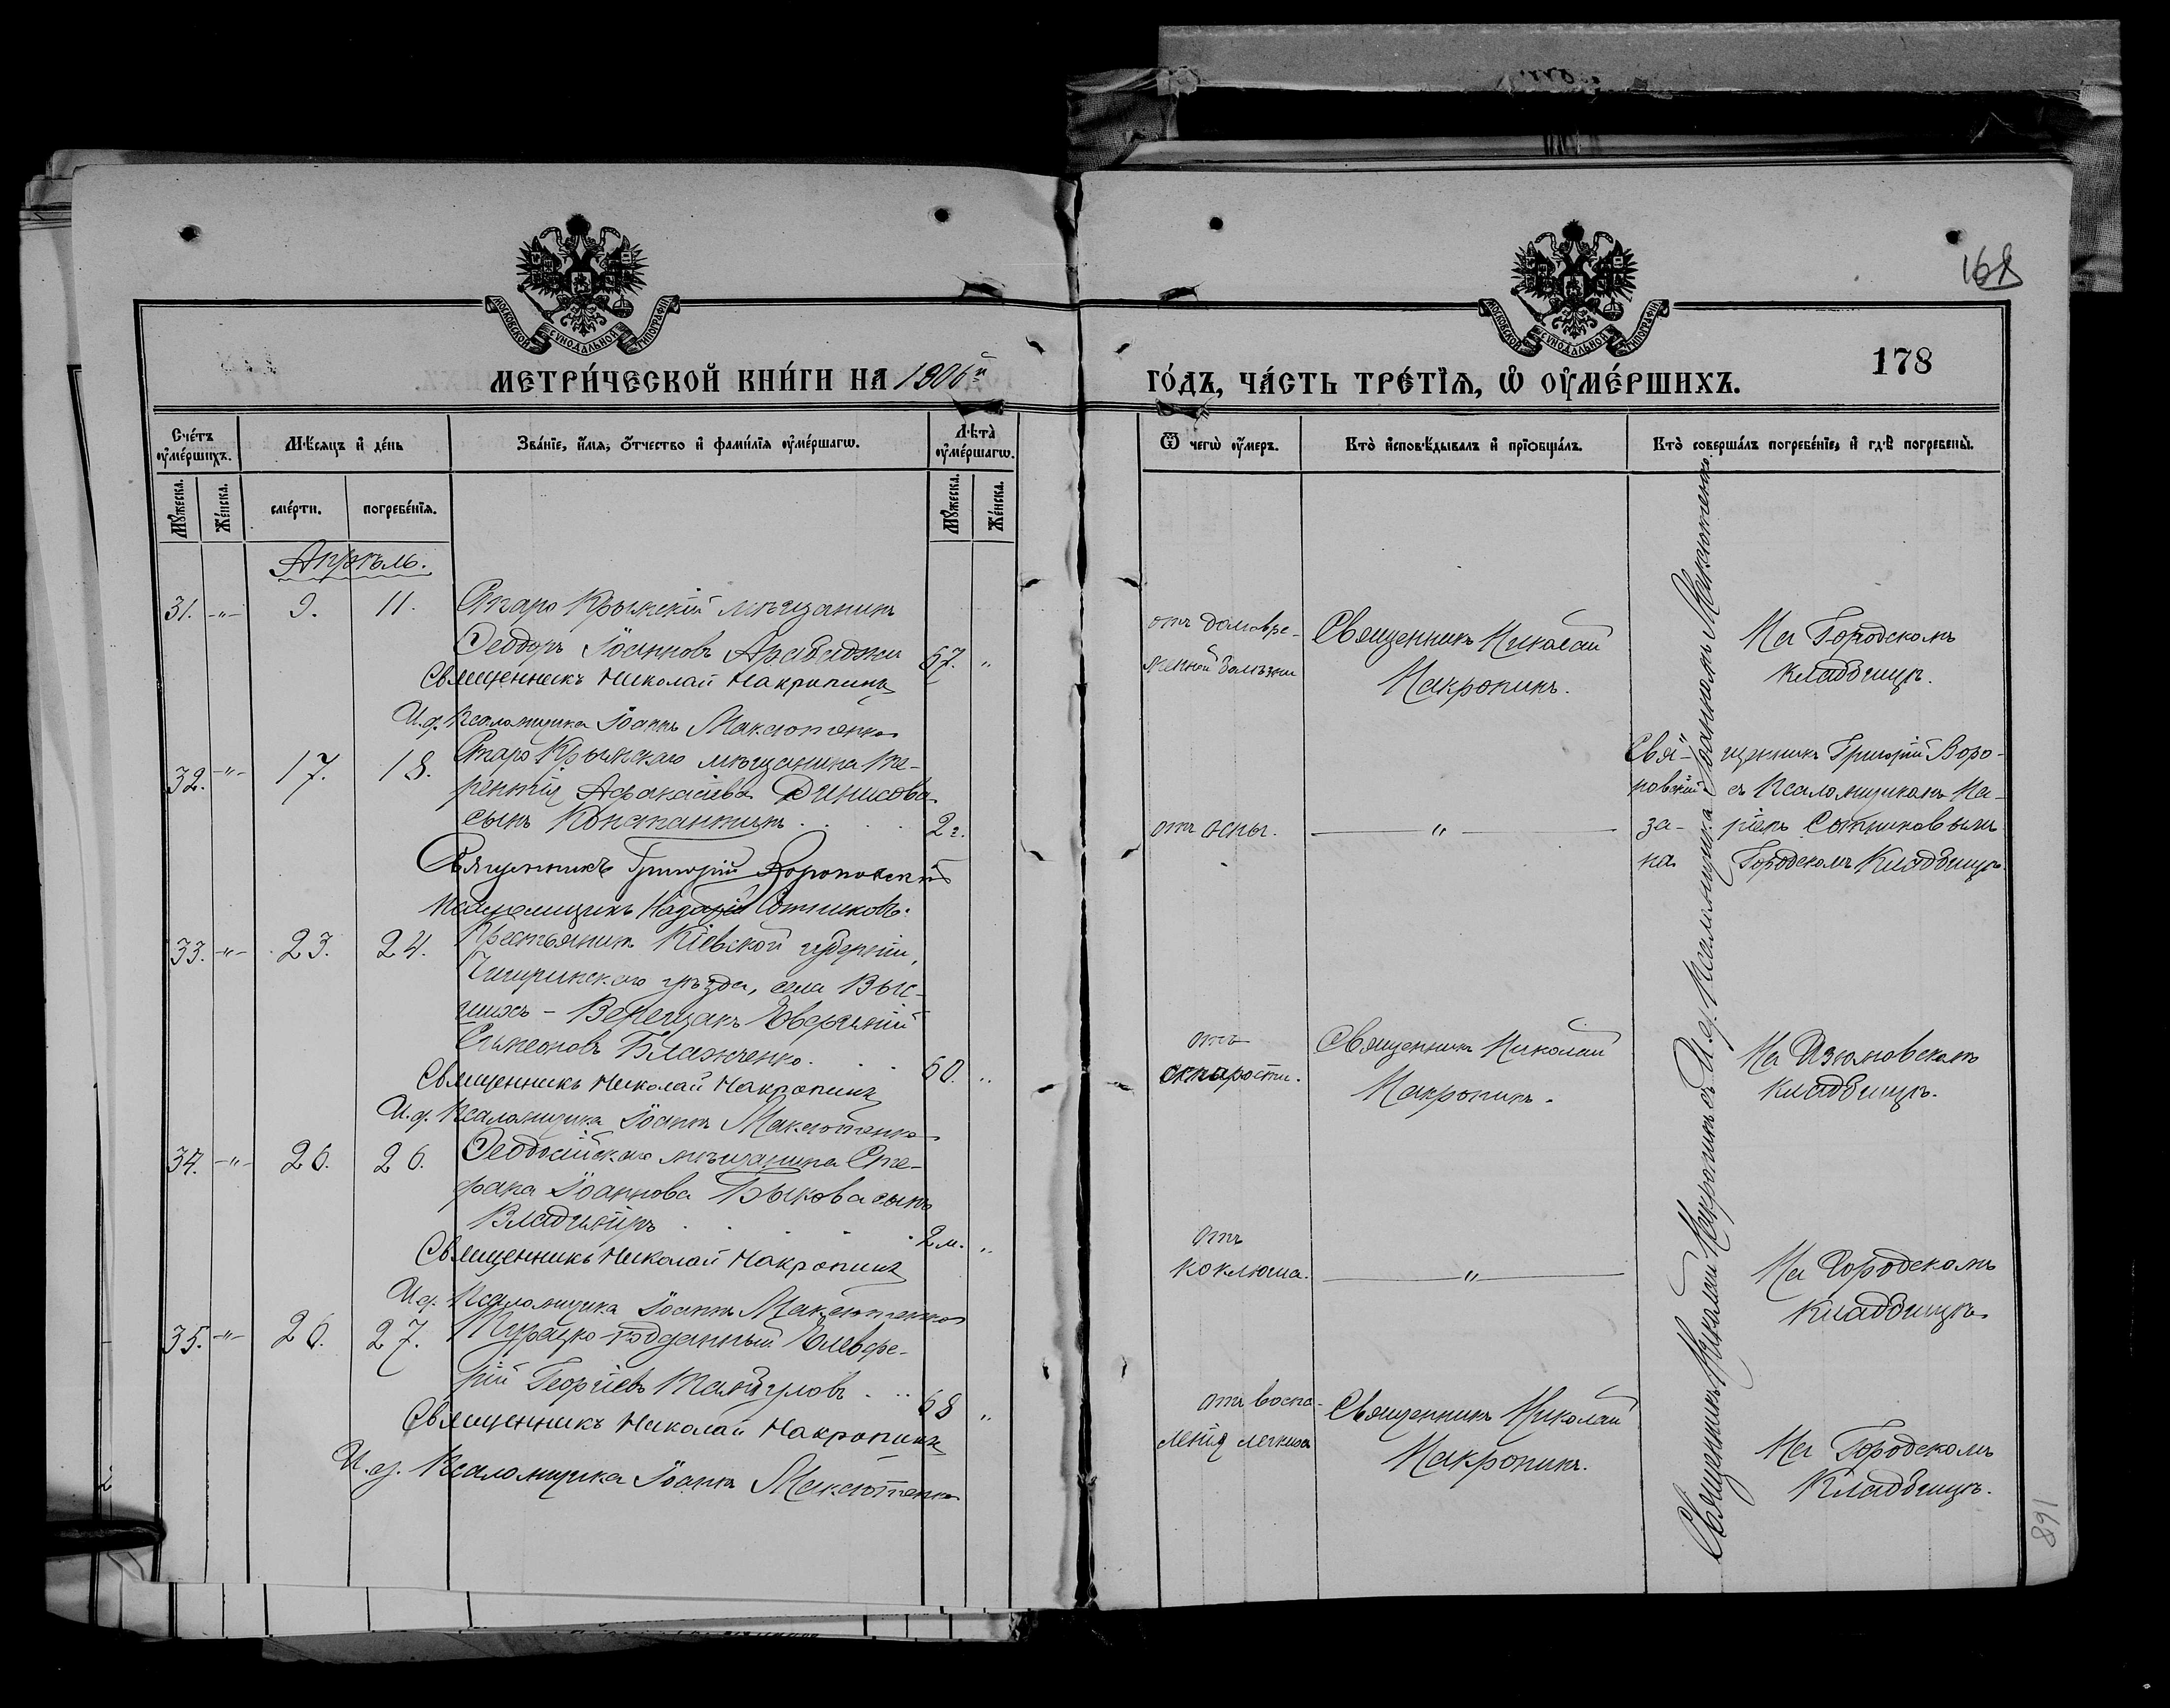 168
178
МОСКОВСКОЙ СѴНОДАЛЬНОЙ ТИПОГРАФІИ
МОСКОВСКОЙ СѴНОДАЛЬНОЙ ТИПОГРАФІИ
МЕТРИ́ЧЕСКОЙ КНИ́ГИ НА 1906й
ГО́ДЪ, ЧА́СТЬ ТРЕ́ТІѦ, Ѽ ОУ҆МЕ́РШИХЪ.
Сче́тъ оу҆ме́ршихъ.
Мѣ́сяцъ и҆ де́нь
Зва́ніе, и҆́мя, ѻ҆́тчество и҆ фами́лія оу҆ме́ршагѡ.
Лѣта̀ оу҆ме́ршагѡ.
Ѿ чегѡ̀ оу҆́меръ.
Кто̀ и҆сповѣ́дывалъ и҆ прїѻбща́лъ.
Кто̀ соверша́лъ погребе́ніе, и҆ гдѣ̀ погребены̀.
Мꙋ́жеска.
Же́нска.
сме́рти.
погребе́нїѧ.
Мꙋ́жеска.
Же́нска.
Апрѣль.
31. -"- 9. 11. Старо Крымскій мѣщанинъ
Ѳеодоръ Іоанновъ Арабаджи 67. "
Священникъ Николай Макропинъ
И.д. Псаломщика Іоаннъ Максютенко
отъ долговре-
менной болѣзни
Священникъ Николай
Макропинъ.
На Городскомъ
кладбищѣ.
32. -"- 17. 18. Старо Крымскаго мѣщанина Те-
рентія Афанасіева Динисова
сынъ Константинъ . . . . 2 г.
Священникъ Григорій Вороновскій
Псаломщикъ Назарій Сотниковъ.
отъ оспы.
"
Свя- щенникъ Григорій Воро-
новскій съ Псаломщикомъ На-
за- ріемъ Сотниковымъ
на Городскомъ Кладбищѣ.
33. -"- 23. 24. Крестьянинъ Кіевской губерніи,
Чигиринскаго уѣзда, села Выс-
шихъ - Верещакъ
Симеоновъ Блажченко. . . 60. "
Священникъ Николай Макропинъ
И.д. Псаломщика Іоаннъ Максютенко
отъ
старости.
Священникъ Николай
Макропинъ.
На Изюмовскомъ
кладбищѣ.
34. -"- 26. 26. Ѳеодосійскаго мѣщанина Сте-
фана Іоаннова Быкова сынъ
Владиміръ . . . . 2 м. "
Священникъ Николай Макропинъ
И.д. Псаломщика Іоаннъ Максютенко
отъ
коклюша.
"
На Городскомъ
кладбищѣ.
35. -"- 26. 27. Турецко-подданный Елевфе-
рій Георгіевъ . . . 68 "
Священникъ Николай Макропинъ
И.д. Псаломщика Іоаннъ Максютенко
отъ воспа-
ленія легкихъ
Священникъ Николай
Макропинъ.
На Городскомъ
Кладбищѣ.
Священникъ Николай Макропинъ съ И.д. Псаломщика Іоанномъ Максютенко.
168